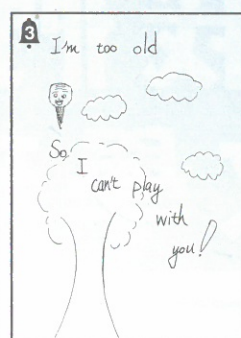 3
I'm too old
So,
I
can't play
with
you!